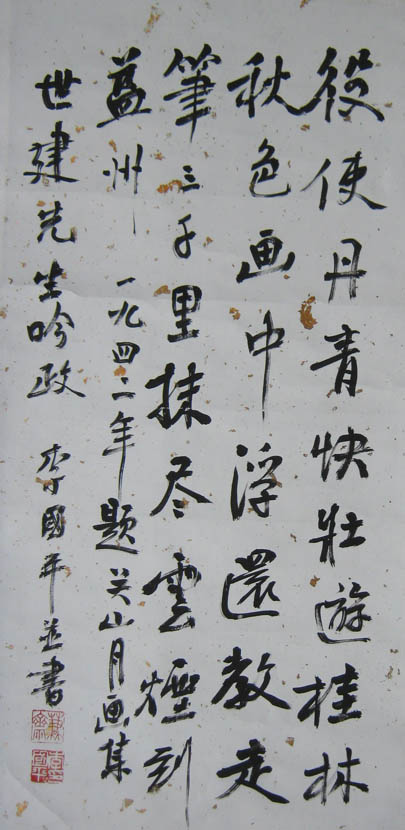 役使丹青快壮遊桂林
秋色画中浮還教走
筆三千里抹尽雲煙到
益州 一九四二年題关山月画集
世建先生吟政 李國平並書